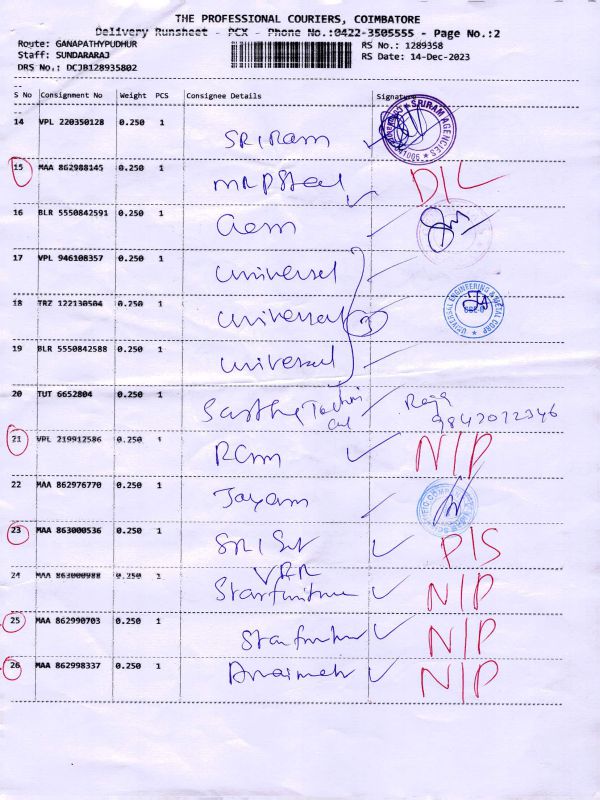 THE PROFESSIONAL COURIERS, COIMBATORE
Delivery Runsheet - PCX - Phone No.:0422-3505555 - Page No.:2
Route: GANAPATHYPUDHUR
RS No.: 1289358
Staff: SUNDARARAJ
RS Date: 14-Dec-2023
DRS No.: DCJB128935802
S No Consignment No Weight PCS Consignee Details Signature
14 VPL 220350128 0.250 1 SRIRam SRIRAM AGENCIES
15 MAA 862988145 0.250 1 MRP Steel D/L
16 BLR 5550842591 0.250 1 aem
17 VPL 946108357 0.250 1 universal
18 TRZ 122130504 0.250 1 universal 3 UNIVERSAL ENGINEERING & METAL CORP
19 BLR 5550842588 0.250 1 universal
20 TUT 6652804 0.250 1 Raja
9843012346
21 VPL 219912586 0.250 1 RCM N/P
22 MAA 862976770 0.250 1 Jayam
23 MAA 863000536 0.250 1 P/S
24 MAA 863000988 0.250 1 N/P
25 MAA 862990703 0.250 1 N/P
26 MAA 862998337 0.250 1 N/P